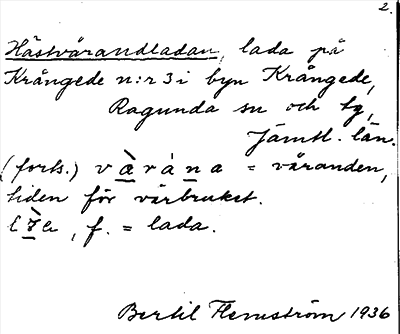 2.
Hästvårandladan, lada på
Krångede n:r 3 i byn Krångede,
Ragunda sn och tg,
Jämtl. län.
(forts.) v à̱ r á ṉ a = våranden,
tiden för vårbruket.
f. = lada.
Bertil Flemström 1936